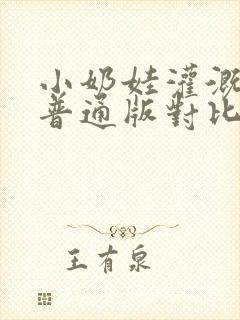 小奶娃灌溉
普通版對比
王有泉